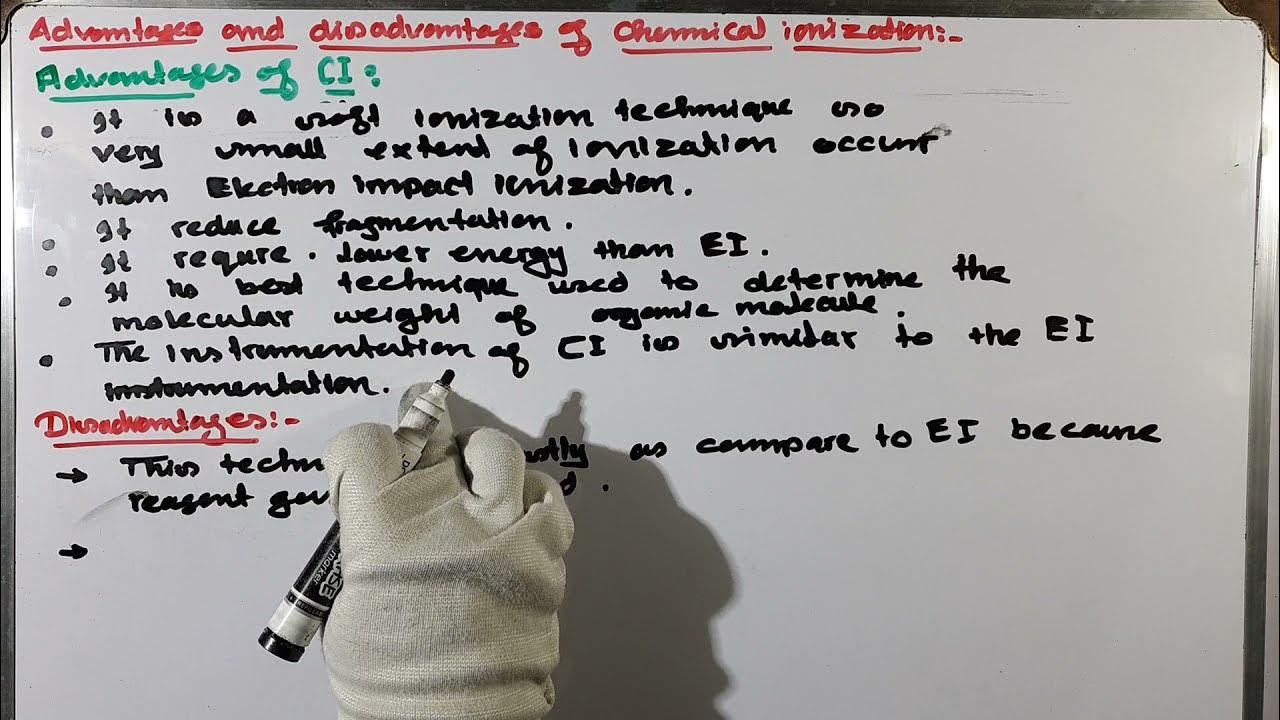 Advantages and disadvantages of Chemical ionization:-
Advantages of CI:
• It is a soft ionization technique so
very small extent of ionization occur
than Electron impact ionization.
• It reduce fragmentation.
• It requre. lower energy than EI.
• It is best technique used to determine the
molecular weight of organic molecule.
• The instrumentation of CI is similar to the EI
instrumentation.
Disadvantages:-
→ This as compare to EI because
reagent
→
marker